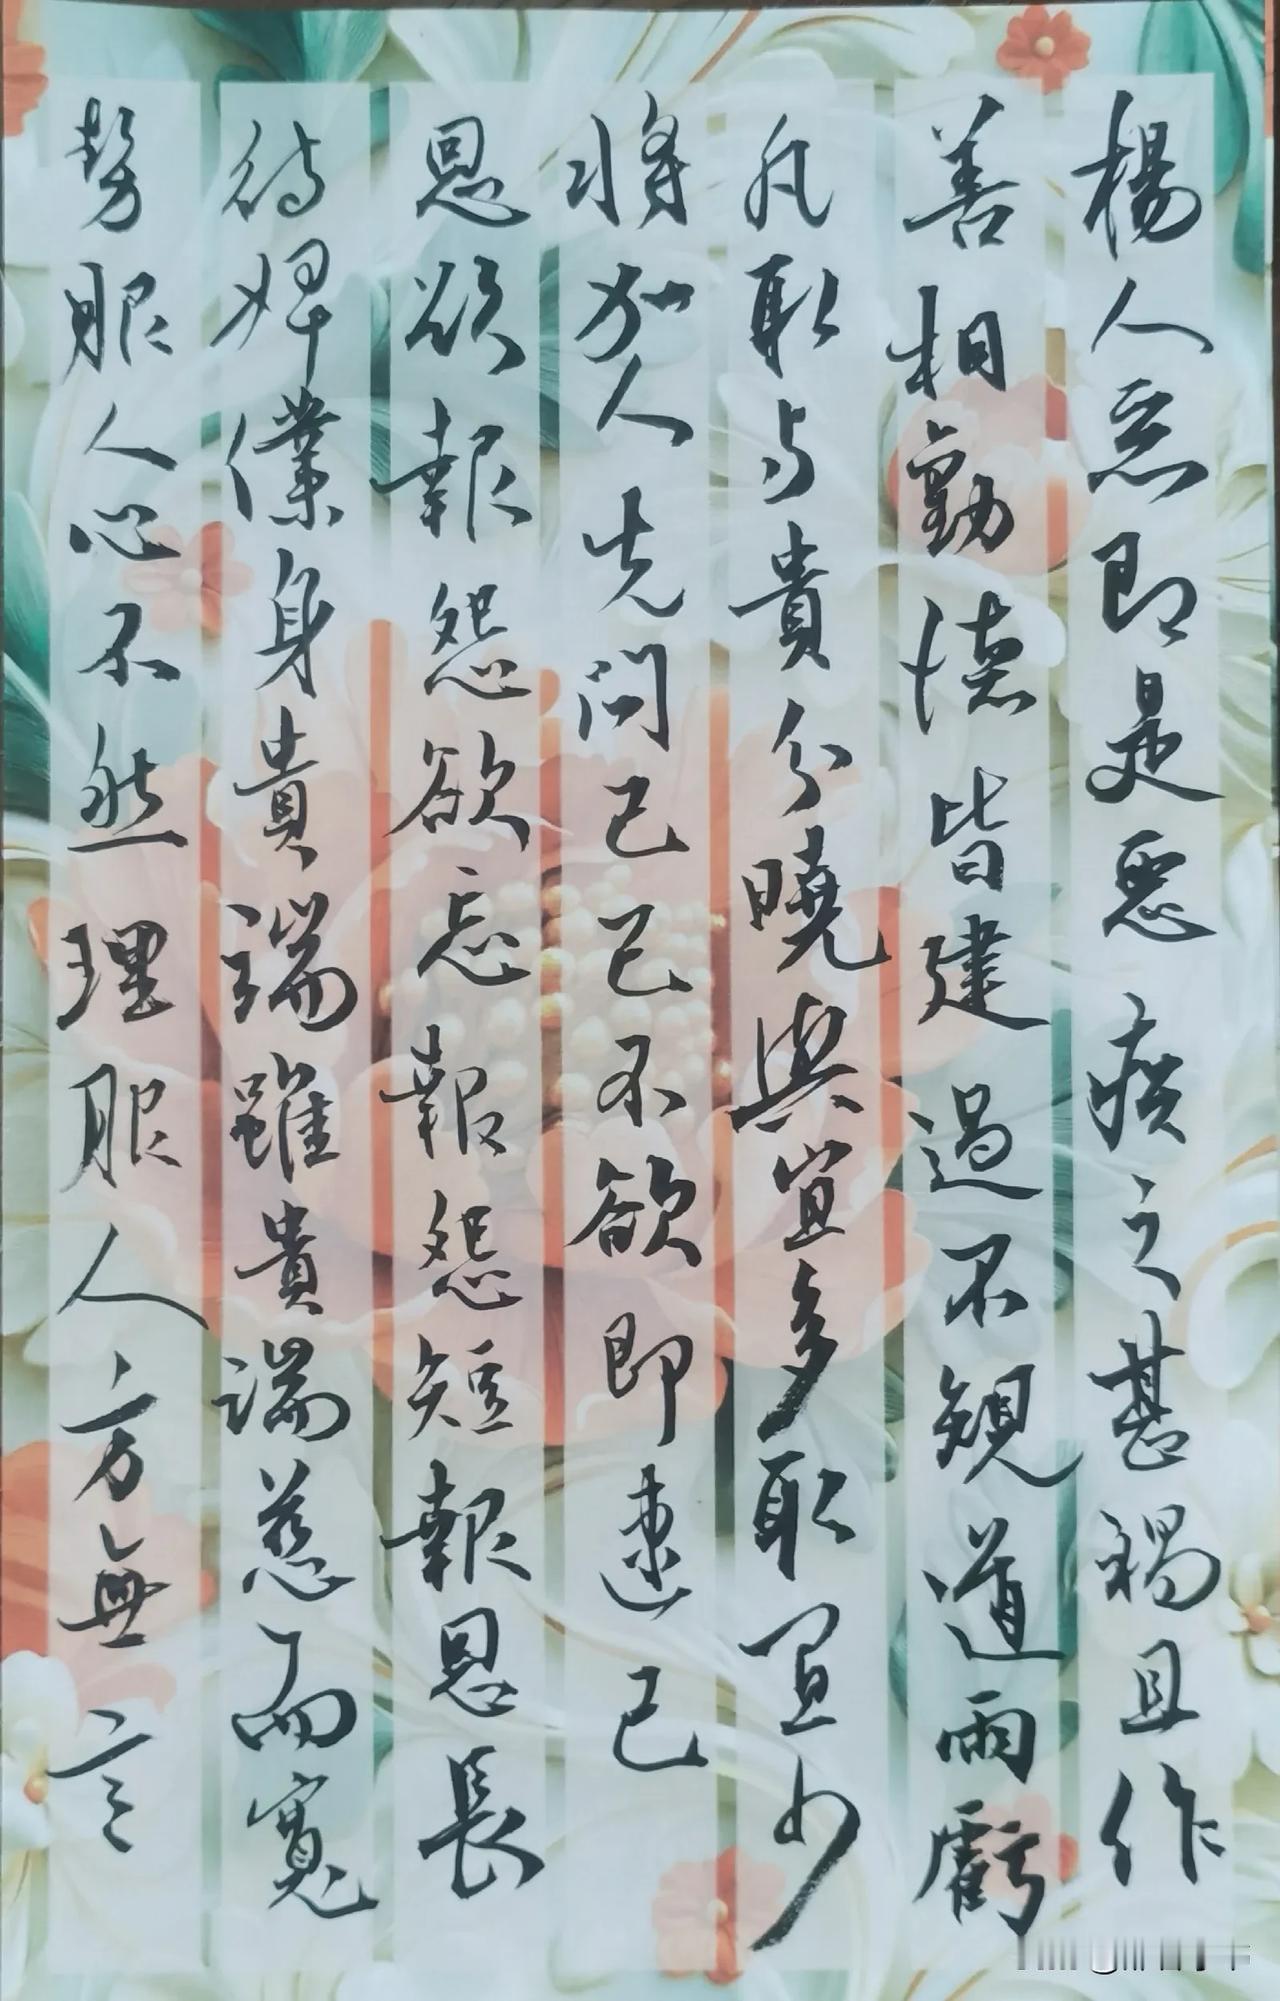 楊人恶即是惡疾之甚禍且作
善相勸德皆建過不規道兩虧
凡取与貴分曉與宜多取宜少
將加人先問己己不欲即速已
恩欲報怨欲忘報怨短報恩長
待婢僕身貴端雖貴端慈而寬
勢服人心不然理服人方無言